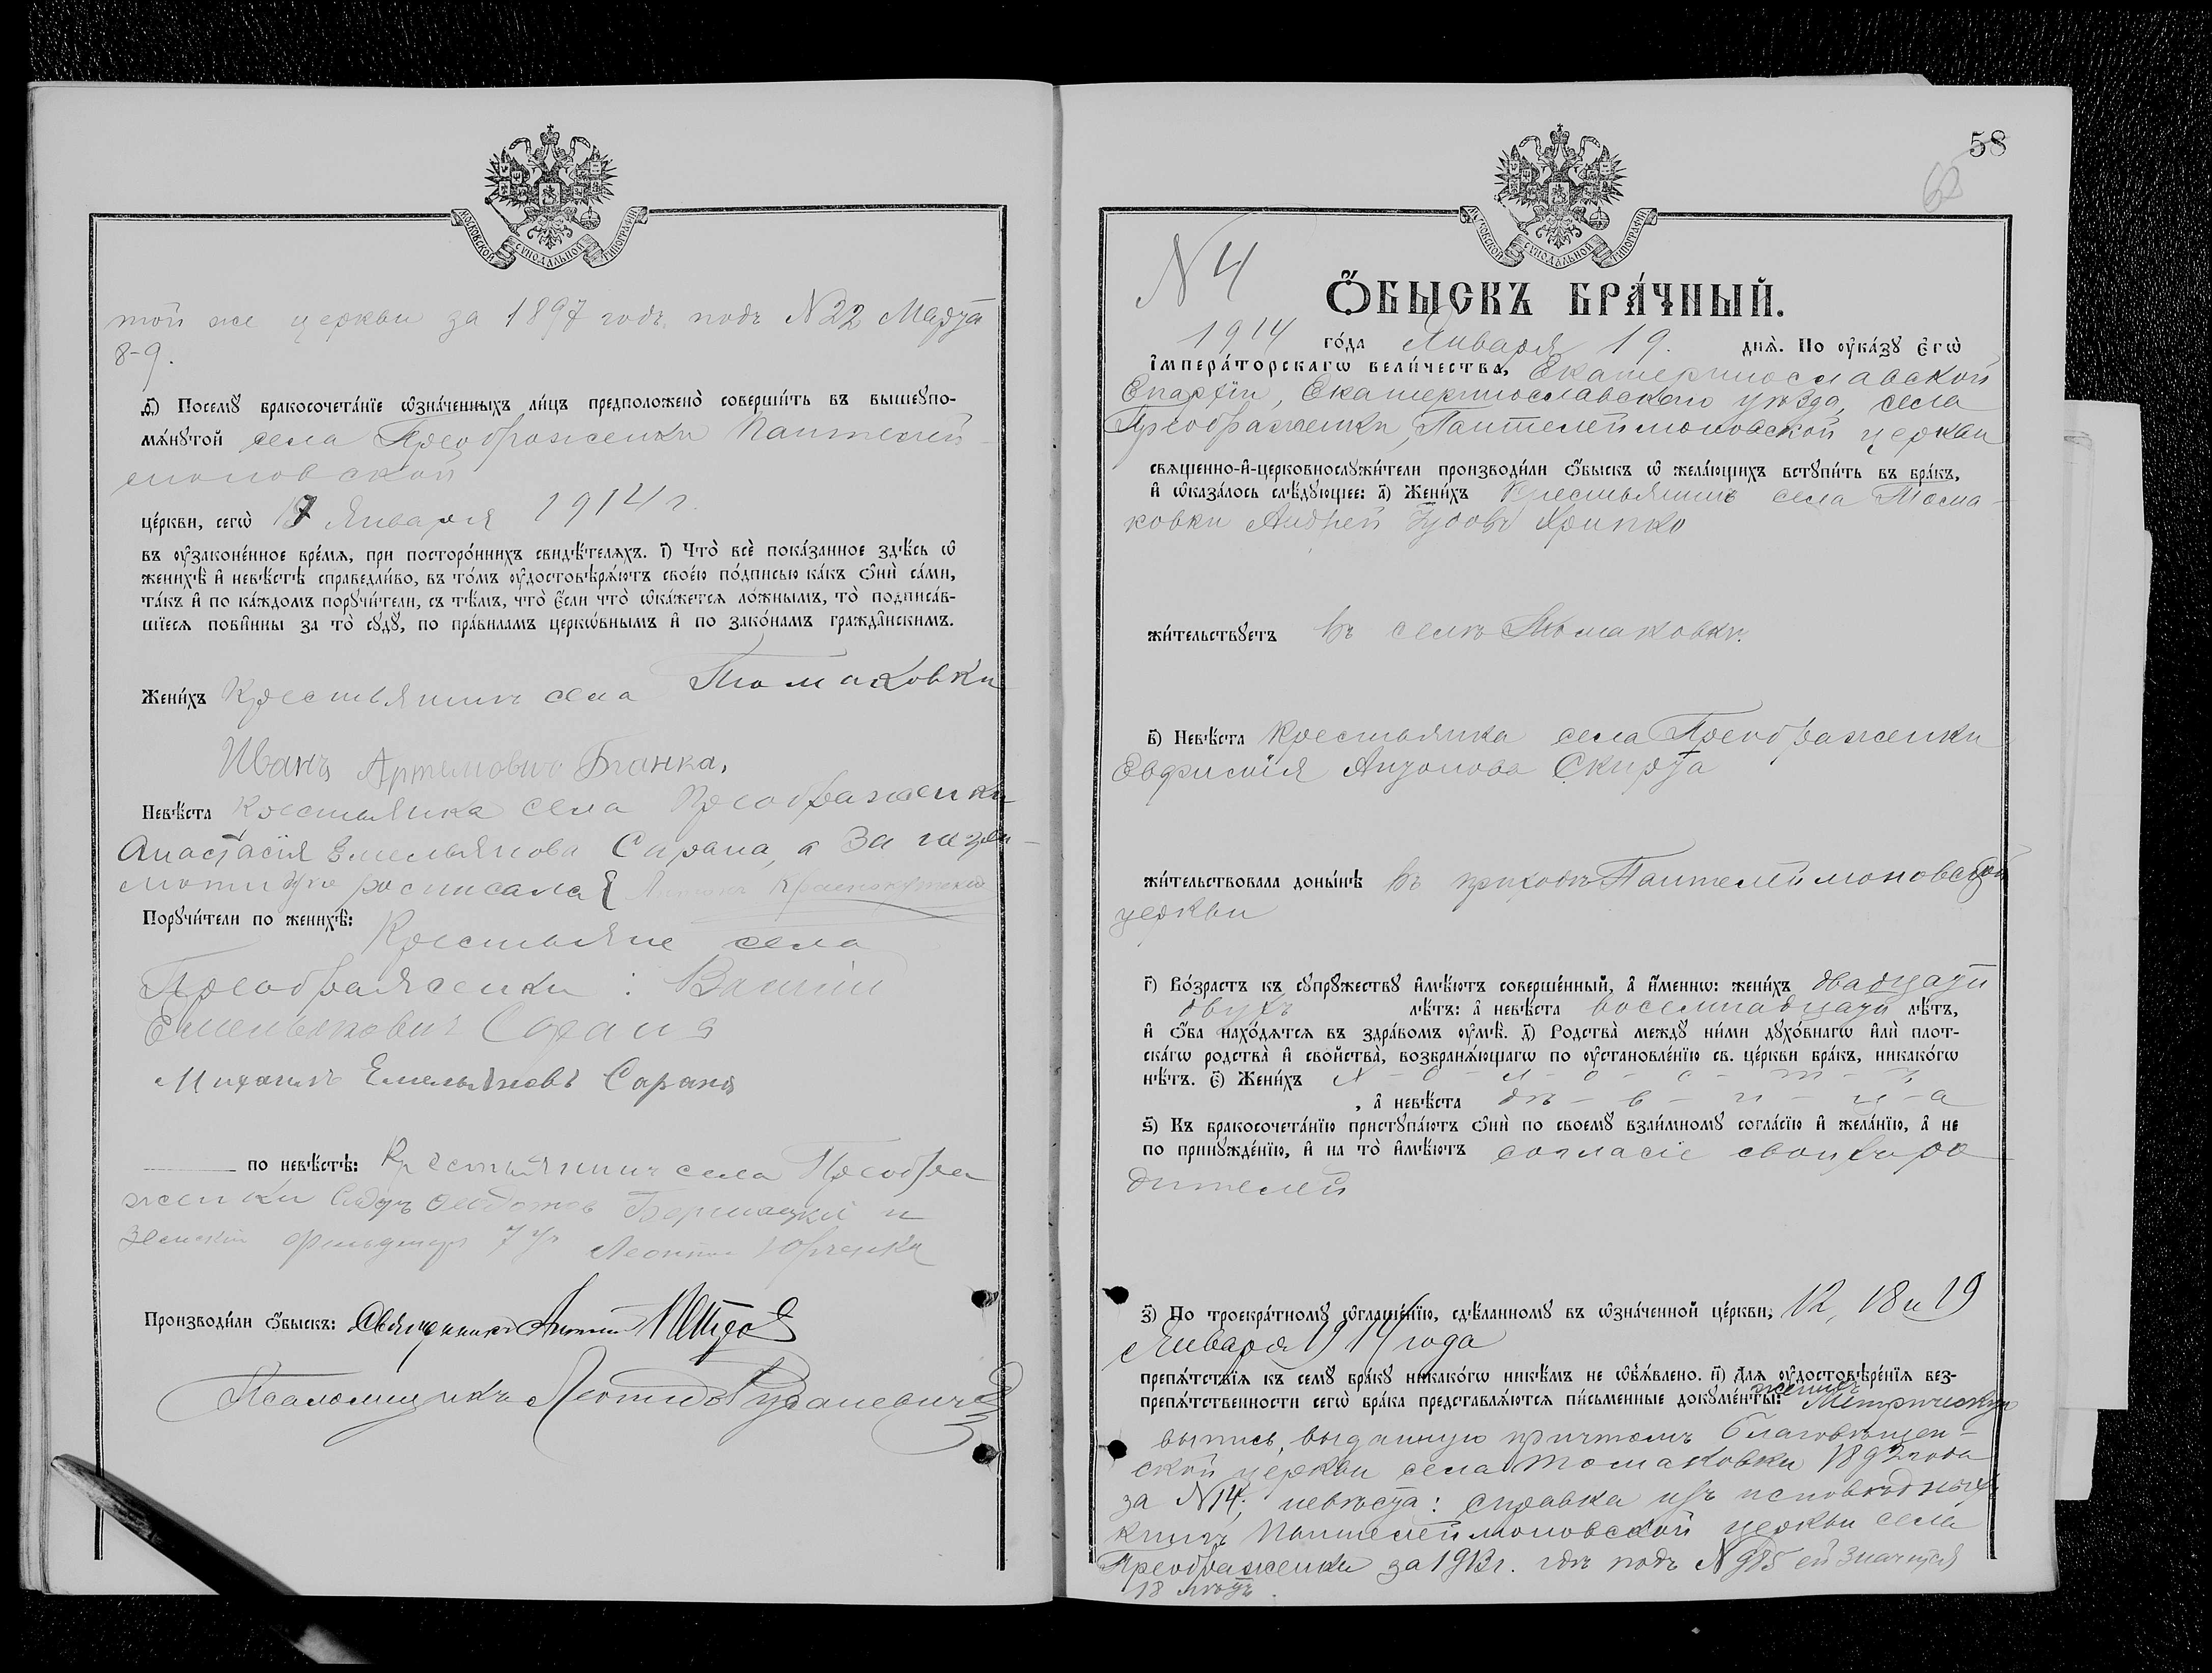 МОСКОВСКОЙ СѴНОДАЛЬНОЙ ТИПОГРАФІИ
той же церкви за 1897 годъ подъ N 22 Марта
8-9.
д҃і) Посемꙋ̀ бракосочета́нїе ѡ҆зна́ченныхъ ли́цъ предположено̀ соверши́ть въ вышеꙋпо-
мѧ́нꙋтой села Преображенки Пантелей-
моновской
це́ркви, сегѡ̀ 17 Января 1914 г.
въ ᲂу҆законе́нное вре́мѧ, при посторо́ннихъ свидѣ́телѧхъ. і҃) Что̀ всѐ пока́занное здѣ́сь ѡ҆
женихѣ̀ и҆ невѣ́стѣ справедли́во, въ то́мъ ᲂу҆достовѣрѧ́ютъ свое́ю по́дписью ка́къ ѻ҆нѝ са́ми,
та́къ и҆ по ка́ждомъ порꙋчи́тели, съ тѣ́мъ, что̀ є҆́сли что̀ ѡ҆ка́жетсѧ ло́жнымъ, то̀ подписа́в-
шїесѧ пови́нны за то̀ сꙋдꙋ̀, по пра́виламъ церко́внымъ и҆ по зако́намъ гражда́нскимъ.
Жени́хъ Крестьянинъ села Томаковки
Иванъ Артемовичъ Бганка,
Невѣ́ста Крестьянка села Преображенки
Анастасія Емельянова Сарана, а за
росписался
Порꙋчи́тели по женихѣ̀: Крестьяне села
Преображенки:
Емельяновичъ Сарана
Михаилъ Емельяновъ Сарана
по невѣ́стѣ: Крестьянинъ села Преобра
женки и
земскій фельдшеръ 7 уч
Производи́ли ѻ҆́быскъ: Священникъ
Псаломщикъ Леонтидъ
58
62
МОСКОВСКОЙ СѴНОДАЛЬНОЙ ТИПОГРАФІИ
N 4
Ѻ҆́БЫСКЪ БРА́ЧНЫЙ.
1914 го́да Января 19. днѧ̀. По ᲂу҆ка́зꙋ Є҆гѡ̀
І҆мпера́торскагѡ вели́чества, Екатеринославской
Епархіи, Екатеринославскаго уѣзда, села
Преображенки, Пантелеймоновской церкви
свѧще́нно-и҆-церковнослꙋжи́тели производи́ли ѻ҆́быскъ ѡ҆ жела́ющихъ встꙋпи́ть въ бра́къ,
и҆ ѡ҆каза́лось слѣ́дꙋющее: а҃) Жени́хъ Крестьянинъ села Тома-
ковки Андрей Хрипко
жи́тельствꙋетъ въ селѣ Томаковкѣ.
в҃) Невѣ́ста Крестьянка села Преображенки
Евфимія Антонова Скирта
жи́тельствовала доны́нѣ въ приходѣ Пантелеймоновской
церкви
г҃) Во́зрастъ къ сꙋпрꙋ́жествꙋ и҆мѣ́ютъ соверше́нный, а҆ и҆́меннѡ: жени́хъ двадцати
двухъ лѣ́тъ: а҆ невѣ́ста восемнадцати лѣ́тъ,
и҆ ѻ҆́ба нахо́дѧтсѧ въ здра́вомъ ᲂу҆мѣ̀. д҃) Родства̀ междꙋ̀ ни́ми дꙋхо́внагѡ и҆лѝ плот-
ска́гѡ родства̀ и҆ сво́йства, возбранѧ́ющагѡ по ᲂу҆становле́нїю св. це́ркви бра́къ, никако́гѡ
нѣ́тъ. є҃) Жени́хъ х-о-л-о-с-т-ъ
, а҆ невѣ́ста дѣ-в-и-ц-а
ѕ҃) Къ бракосочета́нїю пристꙋпа́ютъ ѻ҆нѝ по своемꙋ̀ взаи́мномꙋ согла́сїю и҆ жела́нїю, а҆ не
по принꙋжде́нїю, и҆ на то̀ и҆мѣ́ютъ согласіе своихъ ро
дителей
з҃) По троекра́тномꙋ ѡ҆глаше́нїю, сдѣ́ланномꙋ въ ѡ҆зна́ченной це́ркви, 12, 18 и 19
Января 1914 года
препѧ́тствїѧ къ семꙋ̀ бра́кꙋ никако́гѡ никѣ́мъ не ѡ҆б̾ѧ́влено. и҃) Длѧ̀ ᲂу҆достовѣре́нїѧ без-
препѧ́тственности сегѡ̀ бра́ка представлѧ́ютсѧ пи́сьменные докꙋме́нты: женихъ Метрическую
выпись, выданную причтомъ Благовѣщен-
ской церкви села Томаковки 1892 года
за N 14; невѣста: справка изъ исповѣдныхъ
книгъ Пантелеймоновской церкви села
Преображенки за 1913 г. гдѣ подъ N 985 ей значится
18 лѣтъ.